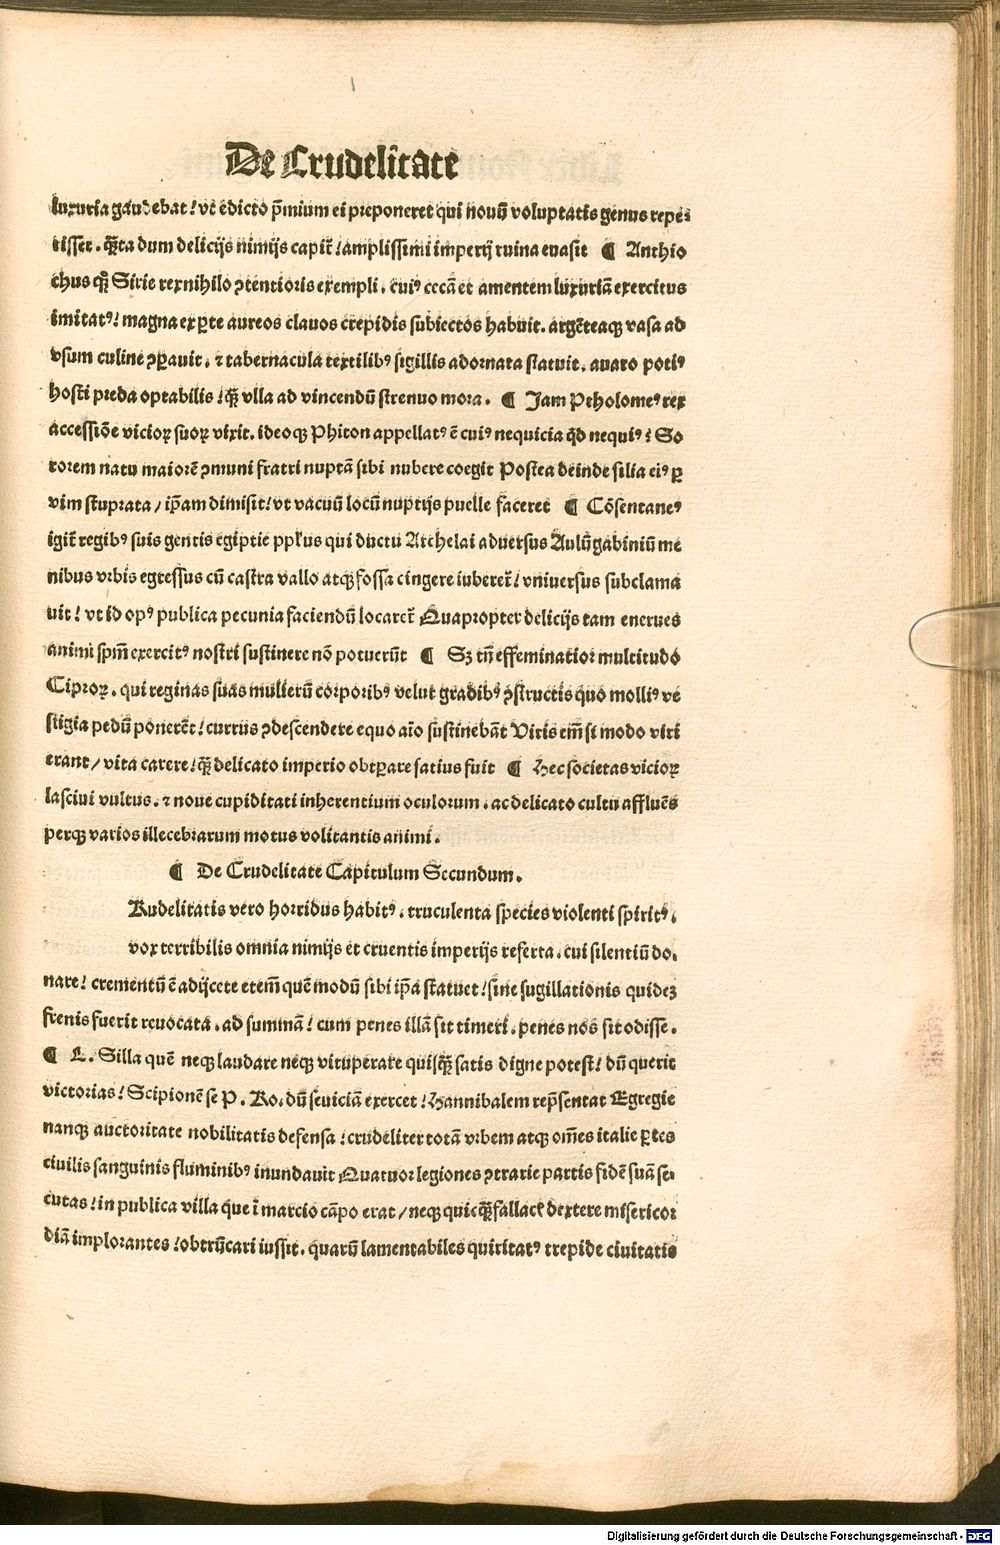 De Crudelitate
luxuria gaudebat! vt edicto p̄mium ei preponeret qui nouū voluptatis genus repe⸗
risset. q̄ꝫta dum delicijs nimijs capit̄! amplissimi imperij ruina euasit ¶ Anthio
chus qꝫ Sirie rex nihilo ꝯtentioris exempli. cuiꝰ cecā et amentem luxuriā exercitus
imitatꝰ! magna ex ꝑte aureos clauos crepidis subiectos habuit. argēteaqꝫ vasa ad
vsum culine ꝯꝑauit. ⁊ tabernacula textilibꝰ sigillis adornata statuit. auaro potiꝰ
hosti preda optabilis! q̄ꝫ vlla ad vincendū strenuo mora. ¶ Jam Ptholomeꝰ rex
accessiōe vicioꝝ suoꝝ vixit. ideoqꝫ Phiton appellatꝰ ē cuiꝰ nequicia qd̄ nequiꝰ? So
rorem natu maiorē ꝯmuni fratri nuptā sibi nubere coegit Postea deinde filia eiꝰ ꝑ
vim stuprata / ip̄am dimisit! vt vacuū locū nuptijs puelle faceret ¶ Cōsentaneꝰ
igit̄ regibꝰ suis gentis egiptie pp̄lus qui ductu Archelai aduersus Aulū gabiniū me
nibus vrbis egressus cū castra vallo atqꝫ fossa cingere iuberet̄! vniuersus subclama
uit! vt id opꝰ publica pecunia faciendū locaret̄ Quapropter delicijs tam enerues
animi sp̄m exercitꝰ nostri sustinere nō potuerūt ¶ Sꝫ tn̄ effeminatior multitudo
Ciproꝝ. qui reginas suas mulierū corporibꝰ velut gradibꝰ ꝯstructis quo molliꝰ ve
stigia pedū ponerēt! currus ꝯdescendere equo aīo sustinebāt Viris em̄ si modo viri
erant / vita carere! q̄ꝫ delicato imperio obtꝑare satius fuit ¶ Hec societas vicioꝝ
lasciui vultus. ⁊ noue cupiditati inherentium oculorum. ac delicato cultu affluēs
perqꝫ varios illecebrarum motus volitantis animi.
¶ De Crudelitate Capitulum Secundum.
Rudelitatis vero horridus habitꝰ. truculenta species violenti spiritꝰ.
vox terribilis omnia nimijs et cruentis imperijs referta. cui silentiū do⸗
nare! crementū ē adijcere etem̄ quē modū sibi ip̄a statuet! sine sugillationis quideꝫ
frenis fuerit reuocata. ad summā! cum penes illā sit timeri. penes nos sit odisse.
¶ L. Silla quē neqꝫ laudare neqꝫ vituperare quisq̄ꝫ satis digne potest! dū querit
victorias! Scipionē se P. Ro. dū seuiciā exercet! Hannibalem rep̄sentat Egregie
nanqꝫ auctoritate nobilitatis defensa! crudeliter totā vrbem atqꝫ om̄es italie ꝑtes
ciuilis sanguinis fluminibꝰ inundauit Quatuor legiones ꝯtrarie partis fidē suā se⸗
cutas! in publica villa que ī marcio cāpo erat / neqꝫ quicq̄ꝫ fallacē dextere misericor⸗
diā implorantes! obtrūcari iussit. quarū lamentabiles quiritatꝰ trepide ciuitatis
Digitalisierung gefördert durch die Deutsche Forschungsgemeinschaft - DFG